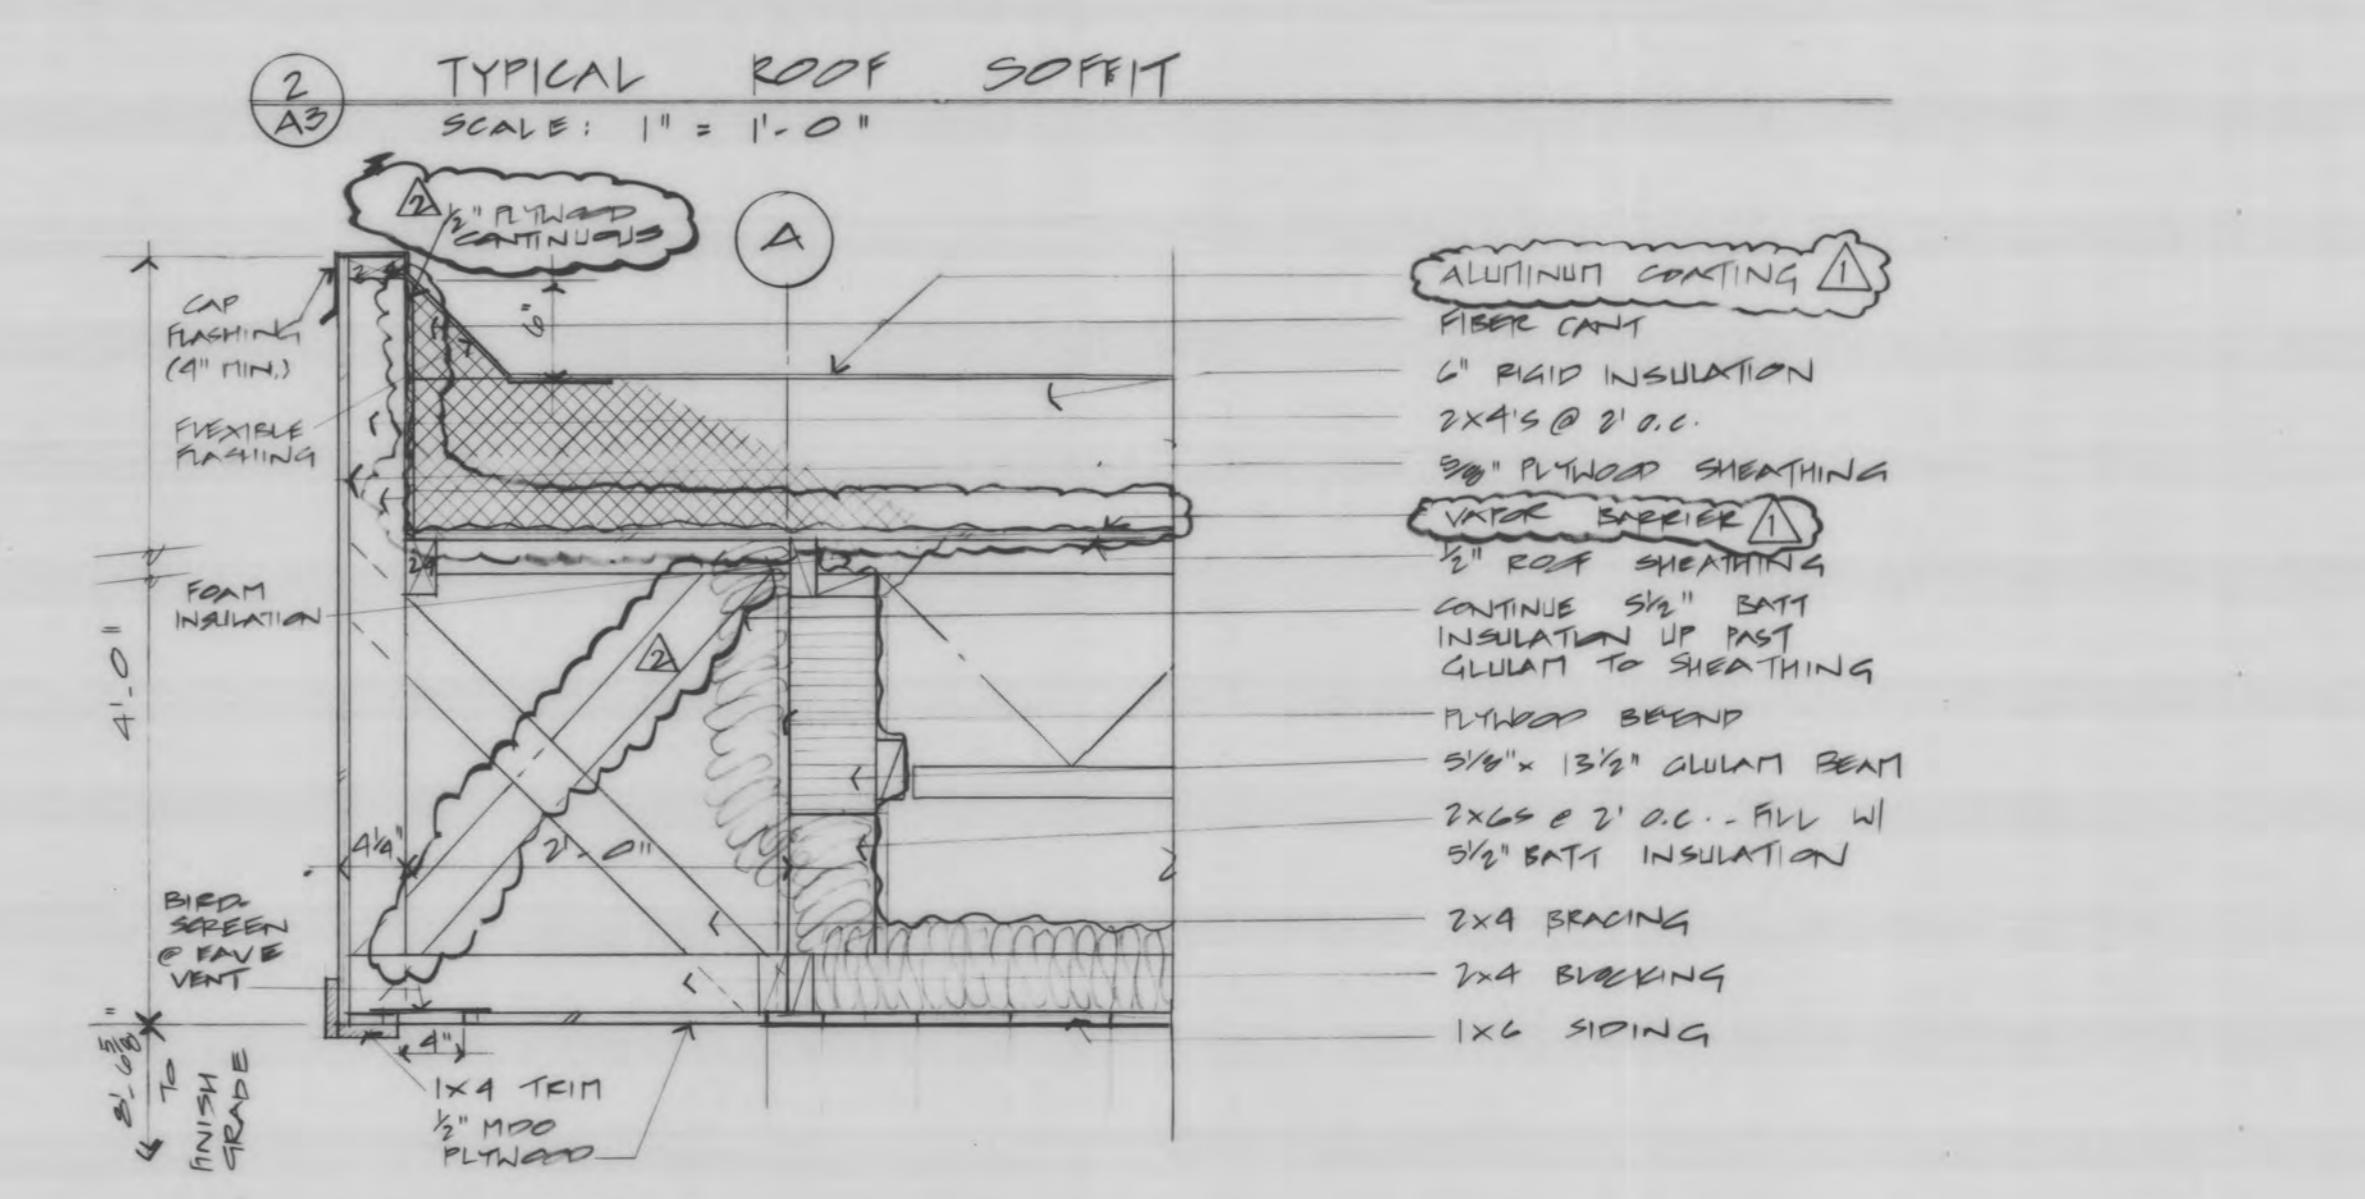 2
A3
TYPICAL ROOF SOFFIT
SCALE: 1" = 1'-0"
2
1/2" PLYWOOD
CONTINUOUS
A
2x4
6"
CAP
FLASHING
(4" MIN.)
FLEXIBLE
FLASHING
FOAM
INSULATION
2x4
4'-0"
2
4 1/4"
2'-0"
BIRD-
SCREEN
@ EAVE
VENT
4"
8'-6 5/8"
TO
FINISH
GRADE
1X4 TRIM
1/2" MDO
PLYWOOD
ALUMINUM COATING 1
FIBER CANT
6" RIGID INSULATION
2X4'S @ 2' O.C.
5/8" PLYWOOD SHEATHING
VAPOR BARRIER 1
1/2" ROOF SHEATHING
CONTINUE 5 1/2" BATT
INSULATION UP PAST
GLULAM TO SHEATHING
PLYWOOD BEYOND
5 1/8" x 13 1/2" GLULAM BEAM
2X6S @ 2' O.C. - FILL W/
5 1/2" BATT INSULATION
2X4 BRACING
2X4 BLOCKING
1X6 SIDING